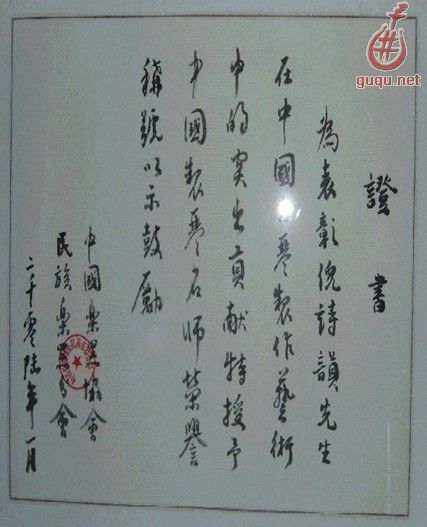 guqu.net
證書
為表彰倪詩韻先生
在中國琴製作藝術
中的突出貢献特授予
中國製琴名師榮譽
稱號以示鼓勵
中國樂器協會
民族樂會
二千零陸年一月